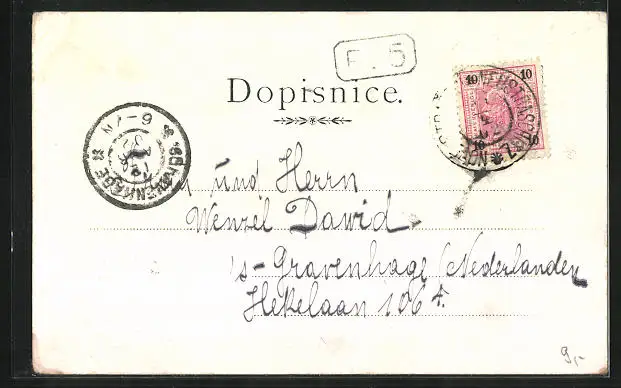 F. 5
Dopisnice.
10 10
10 10
6-7N
und Herrn
Wenzel David
's-Gravenhage (Nederlanden
Hekelaan 106 F.
9,-